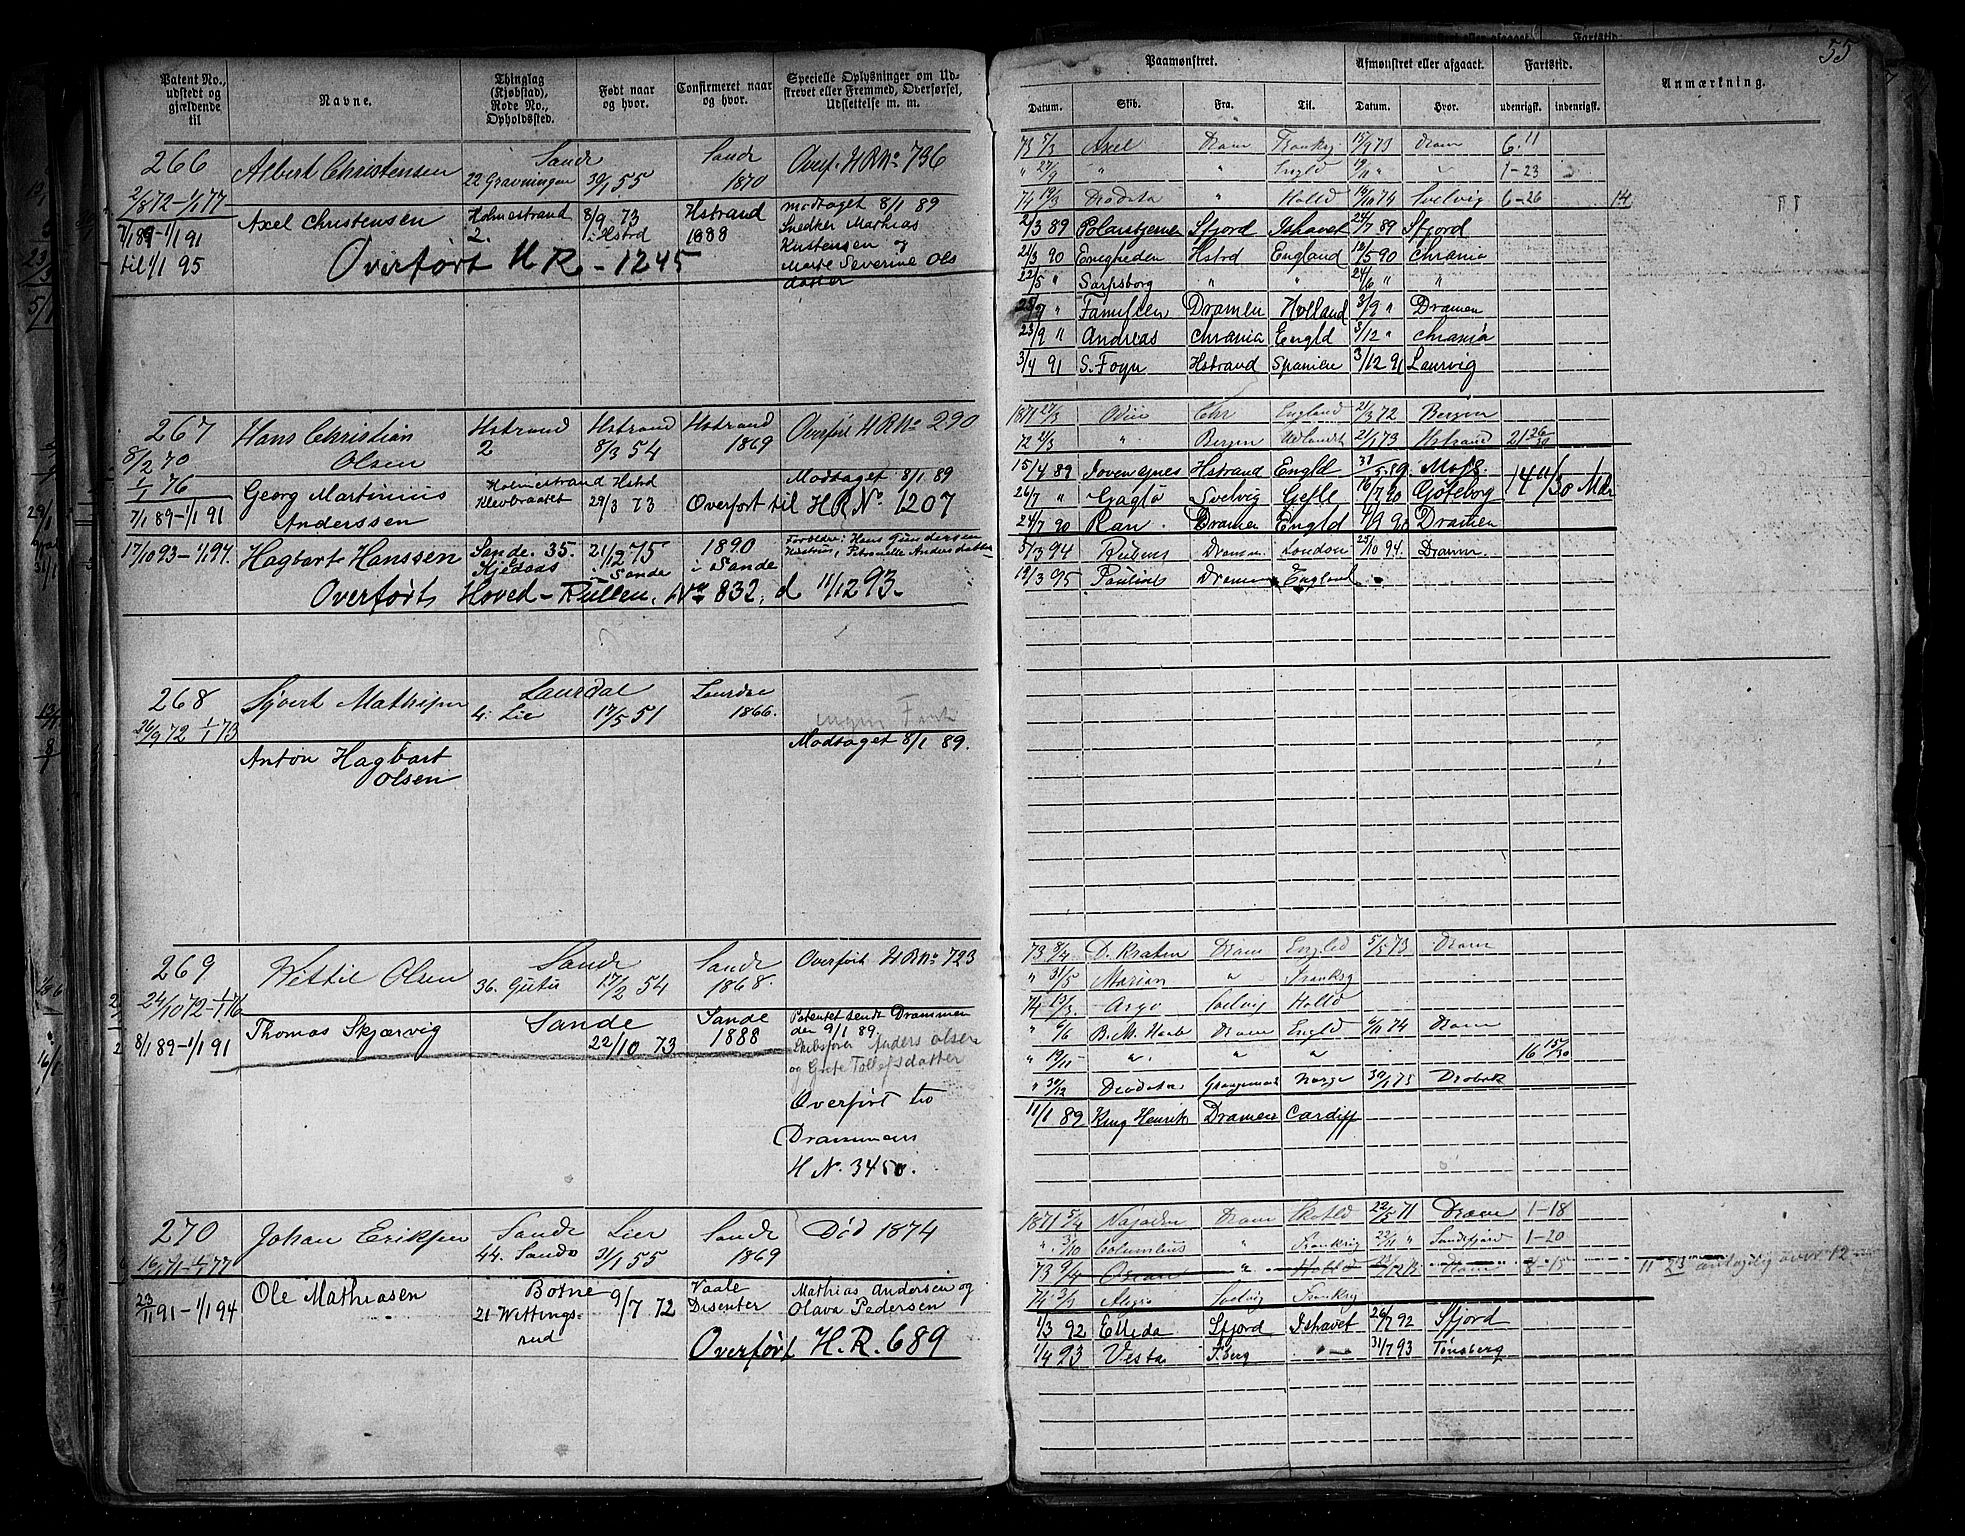 55
Patent No., udstedt og gjældende til
Navne.
Thinglag (Kjøbstad), Rode No., Opholdssted.
Født naar og hvor.
Confirmeret naar og hvor.
Specielle Oplysninger om Udskrevet eller Fremmed, Overførsel, Udslettelse m. m.
Paamønstret.
Afmønstret eller afgaaet.
Fartstid.
Anmærkning.
Datum. Skib. Fra. Til. Datum. Hvor. udenrigsk. indenrigsk.
266 Albert Christensen Sande Sande Overf. HRNo 736
2/8 72 – 1/1 77 22 Gravningen 30/1 55 1870
Axel Christensen Holmestrand 8/9 73 Hstrand modtaget 8/1 89
7/1 89 – 1/1 91 2. i Hstrd 1888 Snedker Mathias
til 1/1 95 Overført H R – 1245 Kristensen og
Marte Severine Ols
datter
73 5/3 Axel Dram Frankrg 15/9 73 Dram 6. 11
" 27/9 " " Engld 19/11 " " 1–23
74 19/3 Deodata " Holld 14/10 74 Svelvig 6–26 14
2/3 89 Polarstjernen Sfjord Ishavet 24/7 89 Sfjord
21/3 90 Enigheden Hstrd England 12/5 90 Chrania
22/5 " Sarpsborg " " 24/6 " "
25/7 " Familien Dramen Holland 3/9 " Dramen
23/9 " Andreas Chrania Engld 3/12 " Chrania
3/4 91 S. Foyn Hstrand Spanien 3/12 91 Laurvig
267 Hans Christian Hstrand Hstrand Hstrand Overført HRNo 290
8/2 70 Olsen 2 8/3 54 1869
1/1 76 Georg Martinius Holmestrand Hstd Modtaget 8/1 89
7/1 89 – 1/1 91 Anderssen Klevbraatet 29/3 73 Overfort til HRNo. 1207
17/10 93 – 1/1 94. Hagbart Hanssen Sande. 35. 21/12 75 1890 Forældre: Hans Gundersen
Kjedaas i Sande i Sande Petronelle Andersdatter
Overført Hoved-Rullen, No 832, d 11/12 93.
1871 27/3 Chr England 21/3 72 Bergen
72 2/3 " Bergen Udlandet 2/1 73 Hstrand 21 26/30
15/4 89 Engld 31/5 89. Moss.
26/7 " Svelvig Gefle 16/7 90 Göteborg 14 11/30 Mdr
24/7 90 Ran. Dramen Engld 4/9 90 Dramen
5/3 94 Rubens Dramm. London 25/10 94. Dramm.
19/3 95 Pauline Dramm England
268 Sjvert Mathisen Laurdal Laurdal
26/9 72 1/1 73 4. Lie 17/5 51 1866. ingen Fart
Anton Hagbart Modtaget 8/1 89.
Olsen
269 Kittil Olsen Sande Sande Overført HRNo 723
24/10 72 – 1/1 76 36. 17/2 54 1868.
Thomas Skjærvig Sande Sande Patentet sendt Drammen
8/1 89 – 1/1 91 22/10 73 1888 den 9/1 89.
Skibsfører Anders Olsen
og Grete Tollefsdatter
Overført til
Drammens
H N. 3450.
73 8/4 Dram Engld 5/5 73 Dram
" 31/5 Marian " Frankrg
74 13/3. Argo Svelvig Holld
" 6/6 Dram Engld 6/11 74 Dram
" 19/11 " " " 16 15/30
" 30/12 Deodata Norge 30/1 75 Drøbak
11/1 89 King Henrik Dramen Cardiff
270 Johan Eriksen Sande Lier Sande Død 1874
16/1 71 – 1/1 77 44. Sando 31/1 55 1869
23/11 91 – 1/1 94 Ole Mathiasen Botne 9/7 72 Vaale Mathias Andersen og
21 Wettingsrud Disenter Olava Pedersen
Overført H. R. 689
1871 5/4 Najaden Dram Skotld 22/5 71 Dram 1–18
" 3/10 Columbus " Frankrig 22/11 " Sandefjord 1–20
73 9/4 Oscar " Holld Dram 8–15
74 Svelvig Frankrg
1/3 92 Ellida Sfjord Ishavet 26/7 92 Sfjord
1/4 93 Vesta T.berg " 31/7 93 Tønsberg